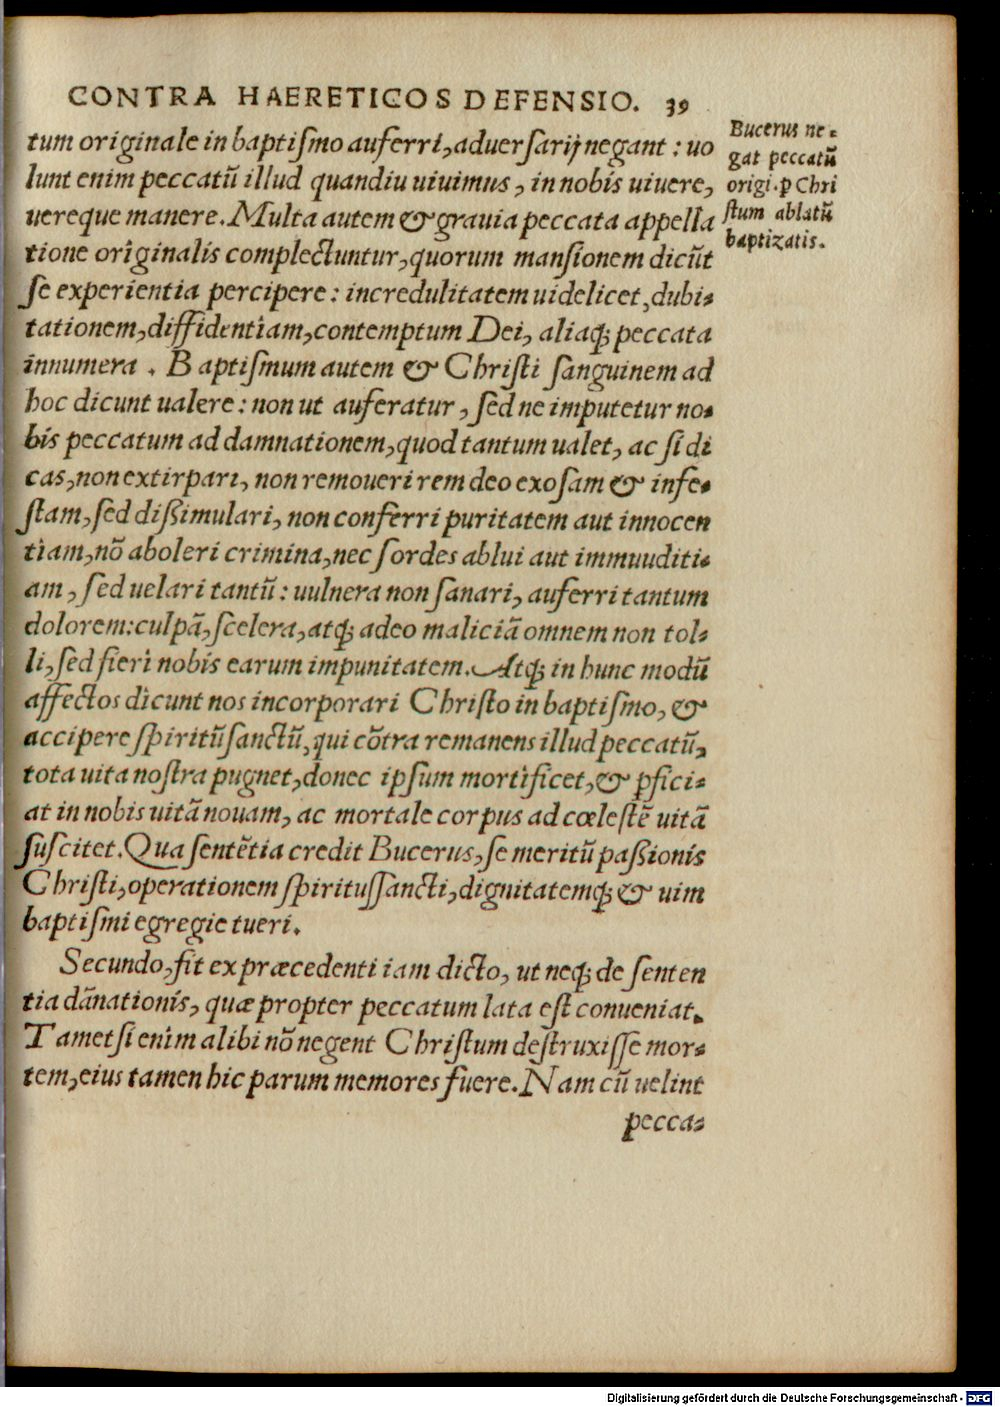 CONTRA HAERETICOS DEFENSIO. 39
tum originale in baptiſmo auferri, aduerſarij negant : uo
lunt enim peccatũ illud quandiu uiuimus, in nobis uiuere,
uereque manere. Multa autem & grauia peccata appella
tione originalis complectuntur, quorum manſionem dicũt
ſe experientia percipere : incredulitatem uidelicet, dubi-
tationem, diffidentiam, contemptum Dei, aliaq; peccata
innumera . Baptiſmum autem & Chriſti ſanguinem ad
hoc dicunt ualere : non ut auferatur, ſed ne imputetur no-
bis peccatum ad damnationem, quod tantum ualet, ac ſi di
cas, non extirpari, non remoueri rem deo exoſam & infe-
ſtam, ſed diſsimulari, non conferri puritatem aut innocen
tiam, nõ aboleri crimina, nec ſordes ablui aut immuuditi-
am, ſed uelari tantũ : uulnera non ſanari, auferri tantum
dolorem: culpã, ſcelera, atq; adeo maliciã omnem non tol-
li, ſed fieri nobis earum impunitatem. Atq; in hunc modũ
affectos dicunt nos incorporari Chriſto in baptiſmo, &
accipere ſpiritũſanctũ, qui cõtra remanens illud peccatũ,
tota uita noſtra pugnet, donec ipſum mortificet, & ꝑfici-
at in nobis uitã nouam, ac mortale corpus ad cœleſtẽ uitã
ſuſcitet. Qua ſentẽtia credit Bucerus, ſe meritũ paſsionis
Chriſti, operationem ſpirituſſancti, dignitatemq; & uim
baptiſmi egregie tueri.
Secundo, fit ex præcedenti iam dicto, ut neq; de ſenten
tia dãnationis, quæ propter peccatum lata eſt conueniat.
Tametſi enim alibi nõ negent Chriſtum deſtruxiſſe mor-
tem, eius tamen hic parum memores fuere. Nam cũ uelint
pecca-
Bucerus ne-
gat peccatũ
origi. ꝑ Chri
ſtum ablatũ
baptizatis.
Digitalisierung gefördert durch die Deutsche Forschungsgemeinschaft - DFG